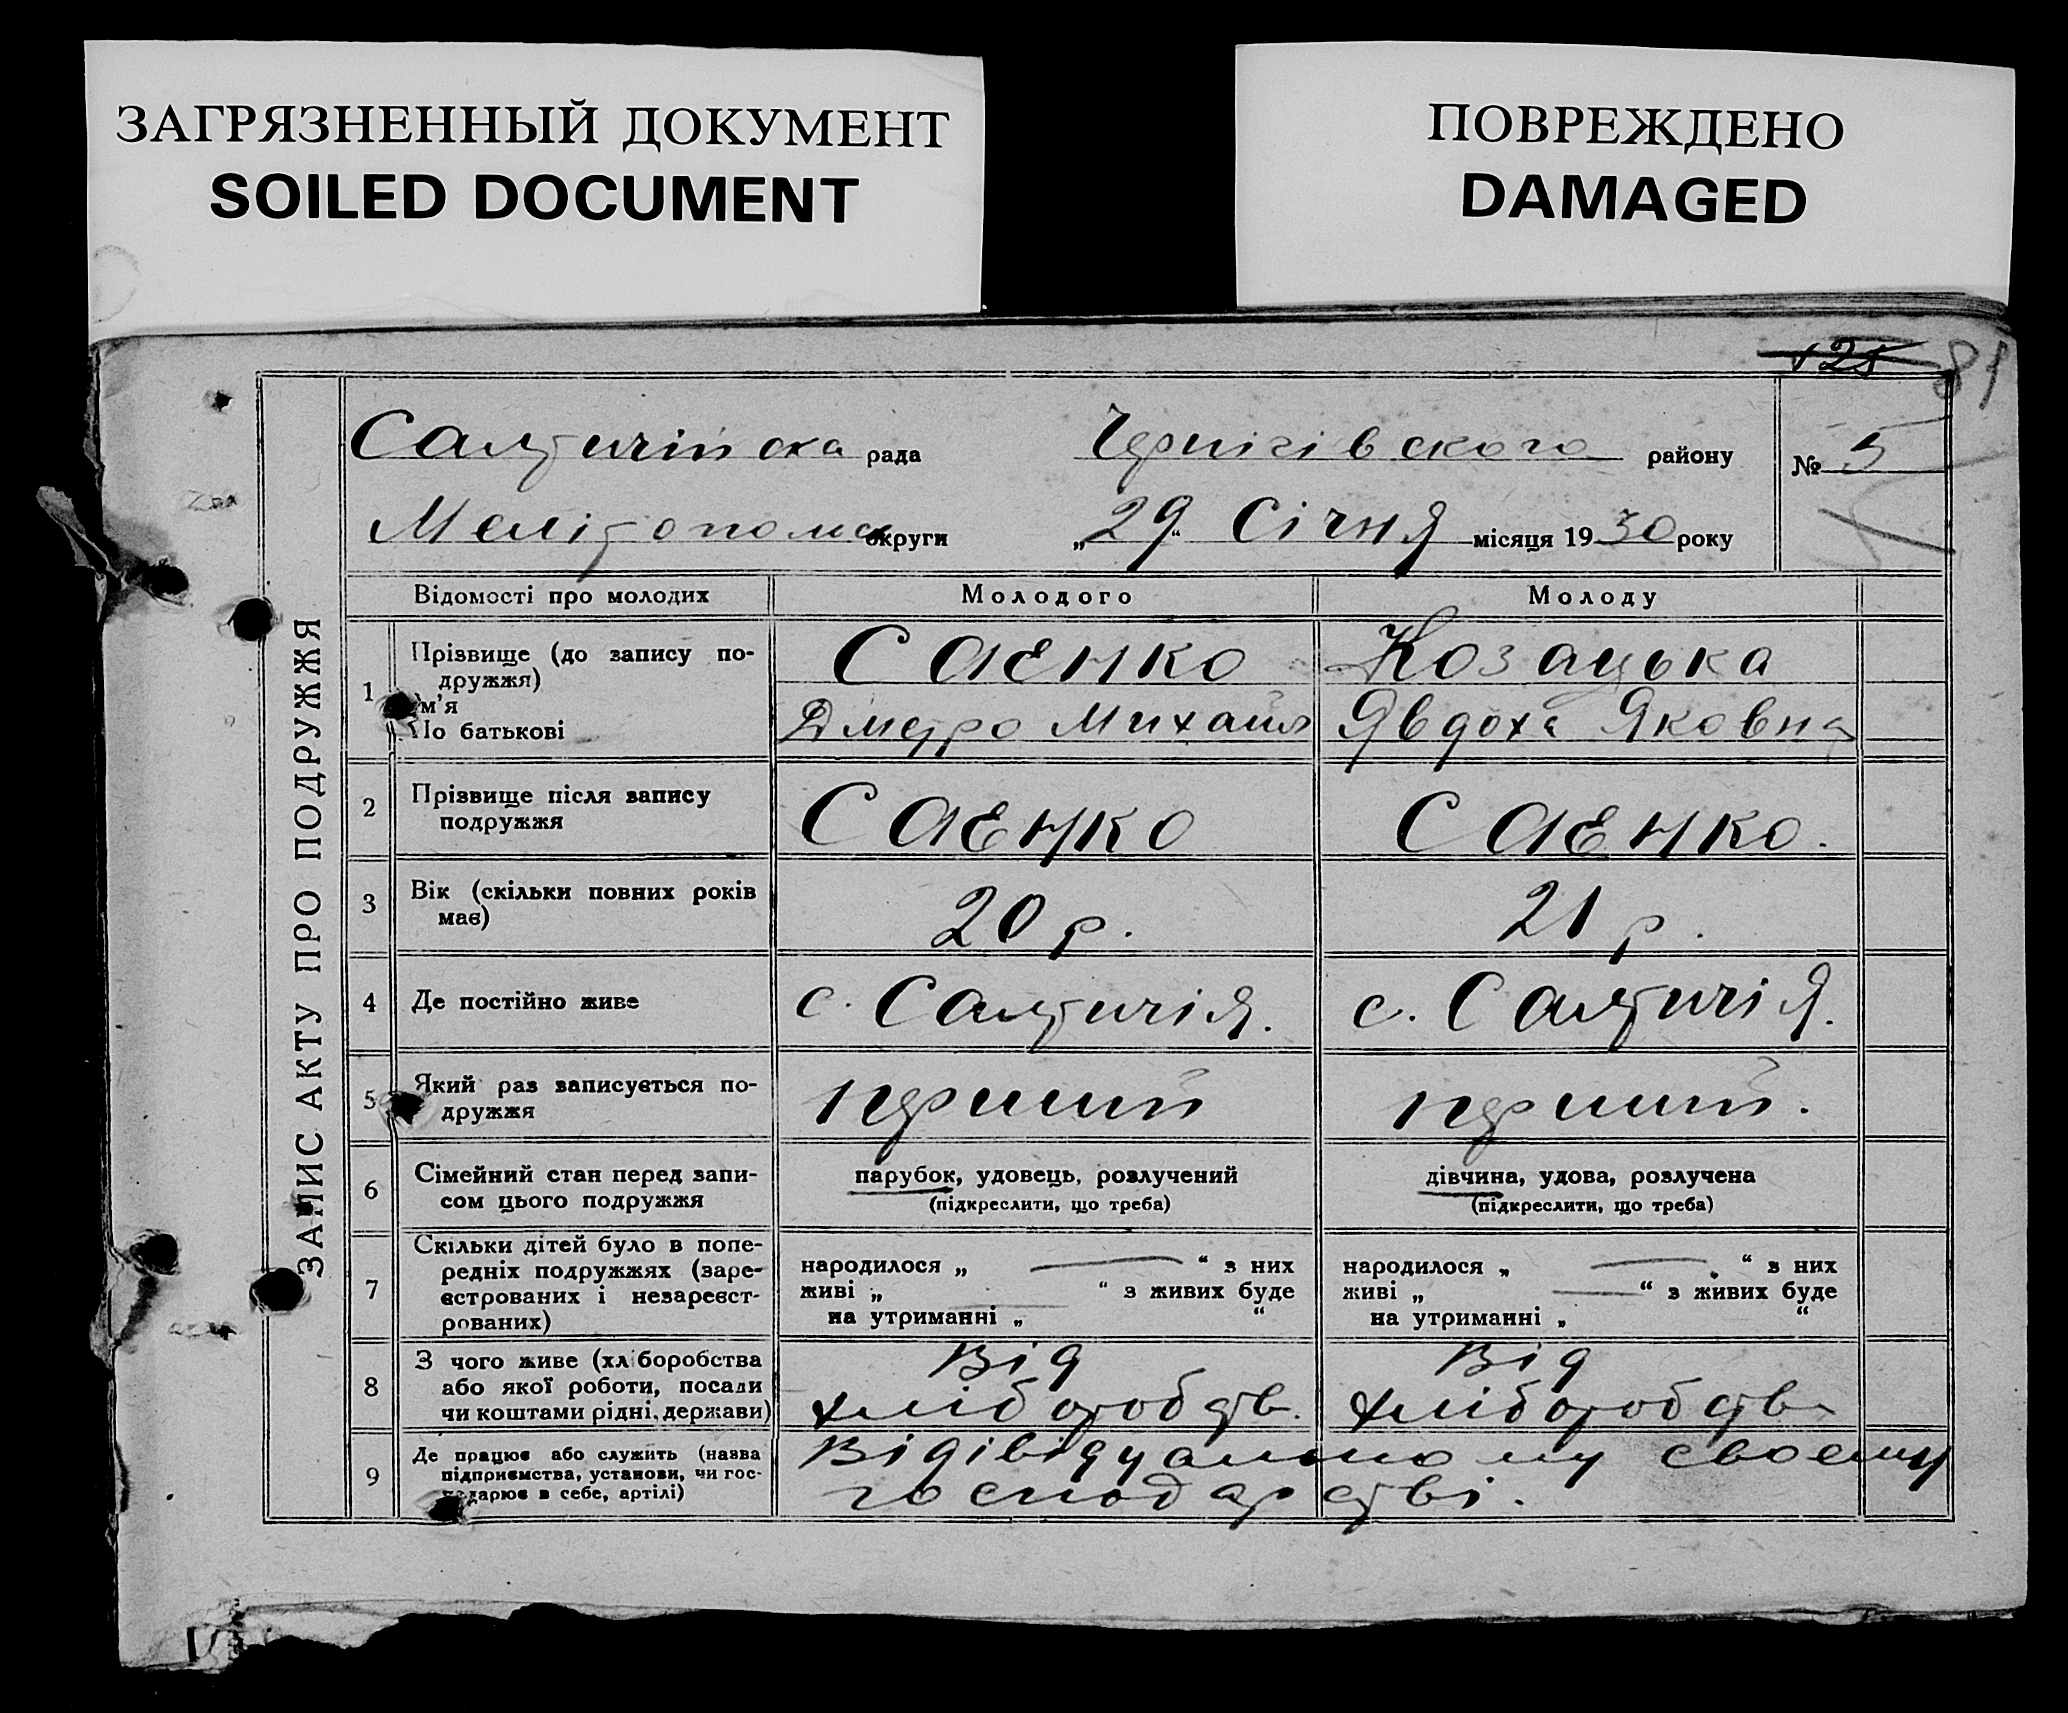 ЗАГРЯЗНЕННЫЙ ДОКУМЕНТ
SOILED DOCUMENT
ПОВРЕЖДЕНО
DAMAGED
125 81
Салтичійська рада Чернігівського району № 5
Мелітопольс округи „29“ Січня місяця 1930 року
ЗАПИС АКТУ ПРО ПОДРУЖЖЯ
Відомості про молодих Молодого Молоду
1 Прізвище (до запису по-
дружжя)
м'я
По батькові
Саенко Козацька
Дметро Михайл Явдоха Яковна
2 Прізвище після запису
подружжя
Саенко Саенко.
3 Вік (скільки повних років
має)
20 р. 21 р.
4 Де постійно живе с. Салтичія. с. Салтичія.
5 Який раз записується по-
дружжя
перший перший.
6 Сімейний стан перед запи-
сом цього подружжя
парубок, удовець, розлучений
(підкреслити, що треба)
дівчина, удова, розлучена
(підкреслити, що треба)
7 Скільки дітей було в попе-
редніх подружжях (заре-
єстрованих і незареєст-
рованих)
народилося „ — “ з них
живі „ — “ з живих буде
на утриманні „ “
народилося „ — “ з них
живі „ — “ з живих буде
на утриманні „ “
8 З чого живе (хліборобства
або якої роботи, посади
чи коштами рідні, держави)
Від
хліборобств.
Від
хліборобства
9 Де працює або служить (назва
підприємства, установи, чи гос-
подарює в себе, артілі)
Відівідуальному своему
господарстві.